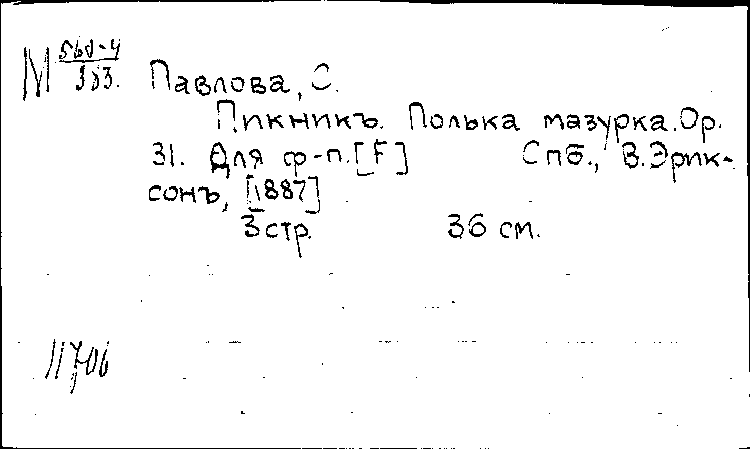 М 560-4/353.
Павлова, С.
Пикникъ. Полька мазурка. Ор.
31. Для ф-п. [F] Спб., В. Эрик-
сонъ, [1887]
3 стр. 36 см.
11706